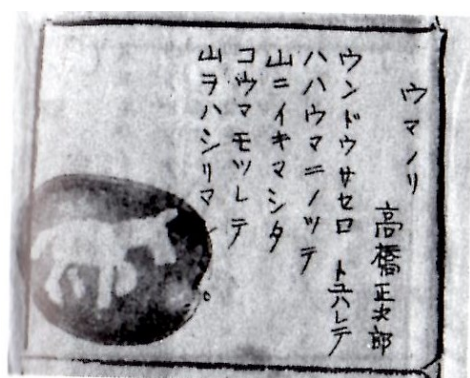 ウマノリ
高橋正次郎
ウンドウサセロ トユハレテ
ハハウマニノツテ
山ニイキマシタ
コウマモツレテ
山ヲハシリマ